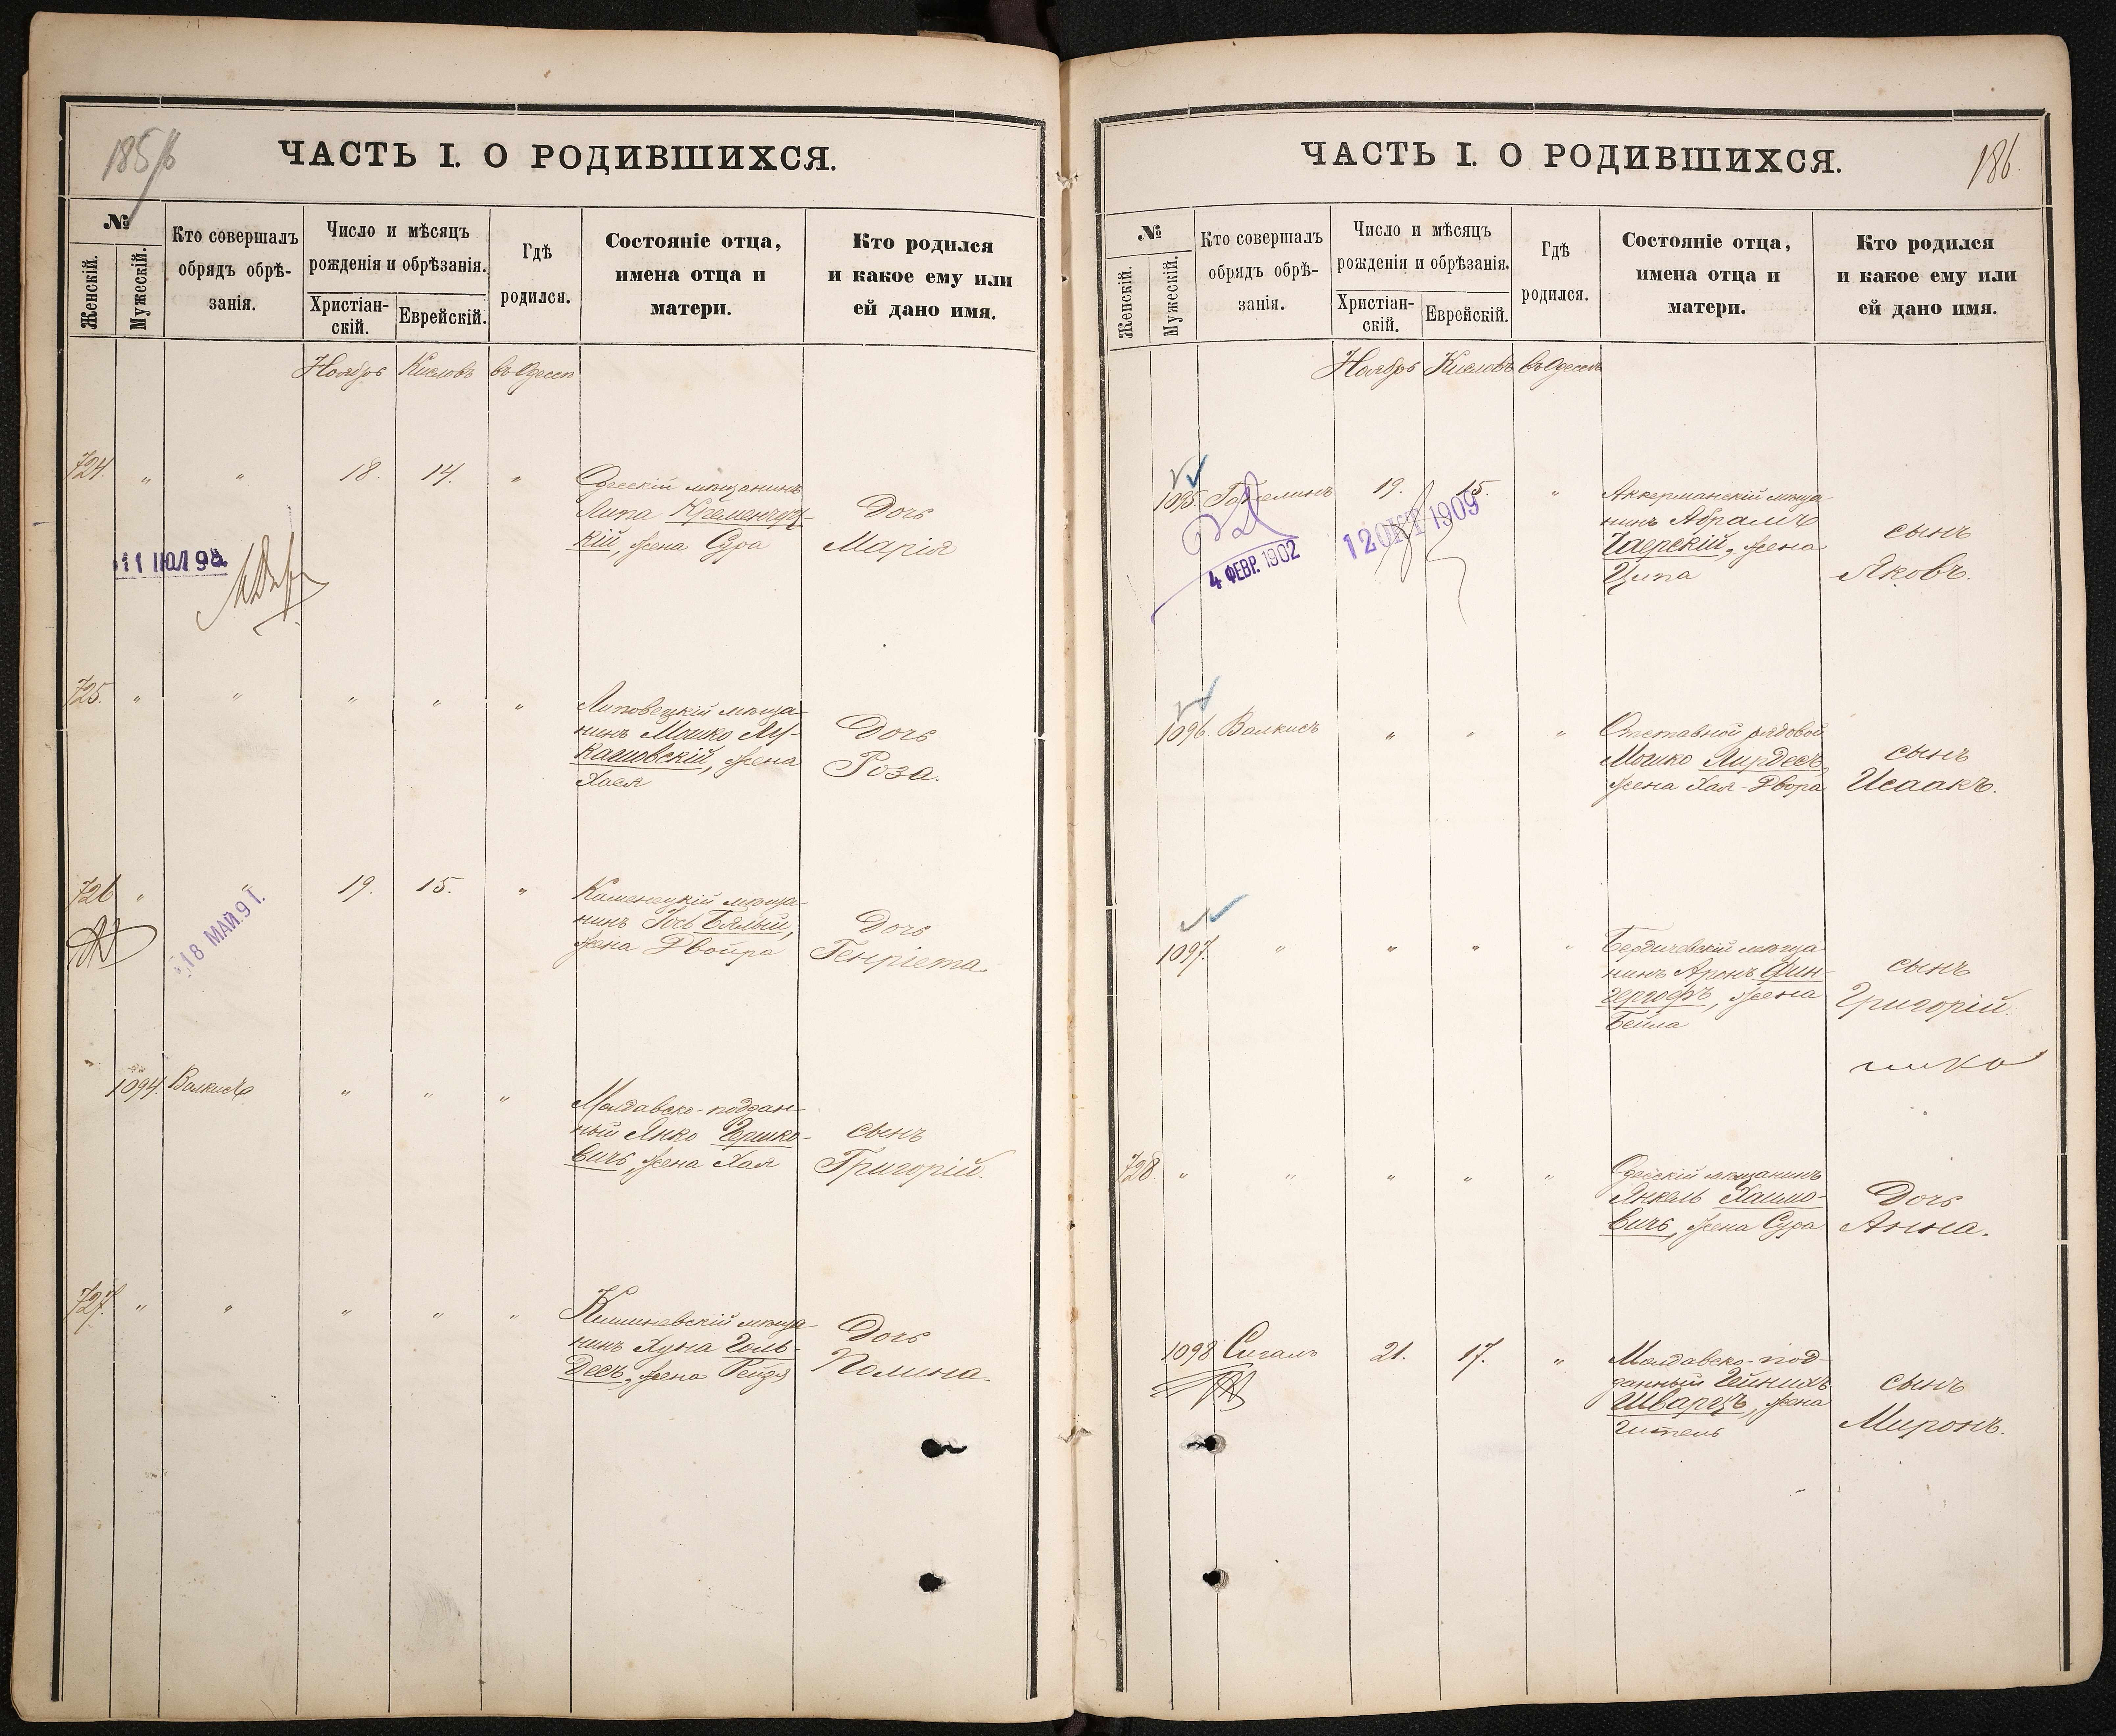 185/6
ЧАСТЬ I. О РОДИВШИХСЯ.
№
Женскій.
Мужескій.
Кто совершалъ
обрядъ обрѣ-
занія.
Число и мѣсяцъ
рожденія и обрѣзанія.
Христіан-
скій.
Еврейскій.
Гдѣ
родился.
Состояніе отца,
имена отца и
матери.
Кто родился
и какое ему или
ей дано имя.
Ноябрь Кислевъ въ Одессѣ
724. " " 18. 14. "
Одесскій мѣщанинъ
Липа Кременчуг-
кій, жена Сура
Дочь
Марія
11 ІЮЛ 98
725. " " " " "
Липовецкій мѣща-
нинъ Мошко Лу-
кашовскій, жена
Хаея
Дочь
Роза.
726 " 19. 15. "
18 МАЙ.91.
Каменецкій мѣща-
нинъ Іось Бялый,
жена Двойра
Дочь
Генріета.
1094. Валкисъ " " "
Молдавско-поддан-
ный Янко Гершко-
вичъ, жена Хая
сынъ
Григорій.
727. " " " " "
Кишиневскій мѣща-
нинъ Хуна Голь-
десъ, жена Рейзя
Дочь
Полина.
ЧАСТЬ I. О РОДИВШИХСЯ.
186.
№
Женскій.
Мужескій.
Кто совершалъ
обрядъ обрѣ-
занія.
Число и мѣсяцъ
рожденія и обрѣзанія.
Христіан-
скій.
Еврейскій.
Гдѣ
родился.
Состояніе отца,
имена отца и
матери.
Кто родился
и какое ему или
ей дано имя.
Ноябрь Кислевъ въ Одессѣ
1095. 19. 15. "
4 ФЕВР. 1902
12 ОКТ 1909
Аккерманскій мѣща-
нинъ Абрамъ
жена
Ципа
сынъ
Яковъ.
1096. Валкисъ " " "
Отставной рядовой
Мошко Лирдесъ,
жена Хая-Двора
сынъ
Исаакъ.
1097. " " " "
Бердичевскій мѣща-
нинъ Аронъ Фин-
гергофъ, жена
Бейла
сынъ
Григорій.
728. " " " " "
Одесскій мѣщанинъ
Янкель Хаимо-
вичъ, жена Сура
Дочь
Анна.
1098 Сигалъ 21. 17. "
Молдавско-под-
данный Гейнихъ
Шварцъ, жена
Гитель
сынъ
Миронъ.